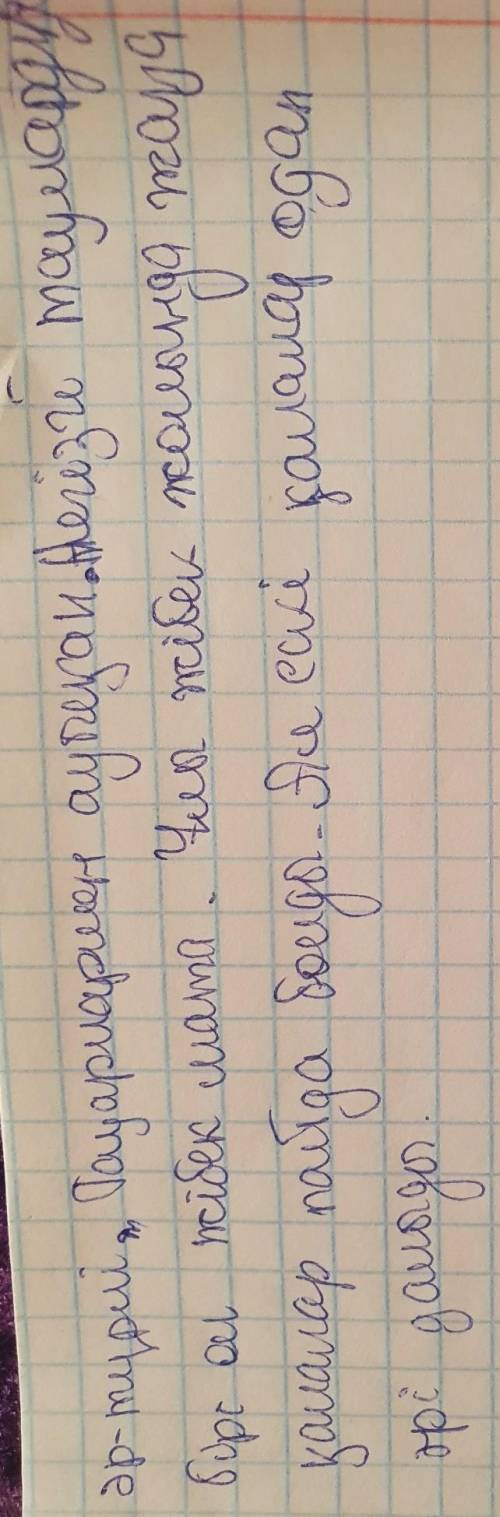 әр-түрлі, Тауарлармен ауысқан. Негізгі тауулардың
бірі ол жібек мата. Ұлы жібек жолында жаңа
қалалар пайда болды. Ал ескі қалалар одан
әрі дамыды.